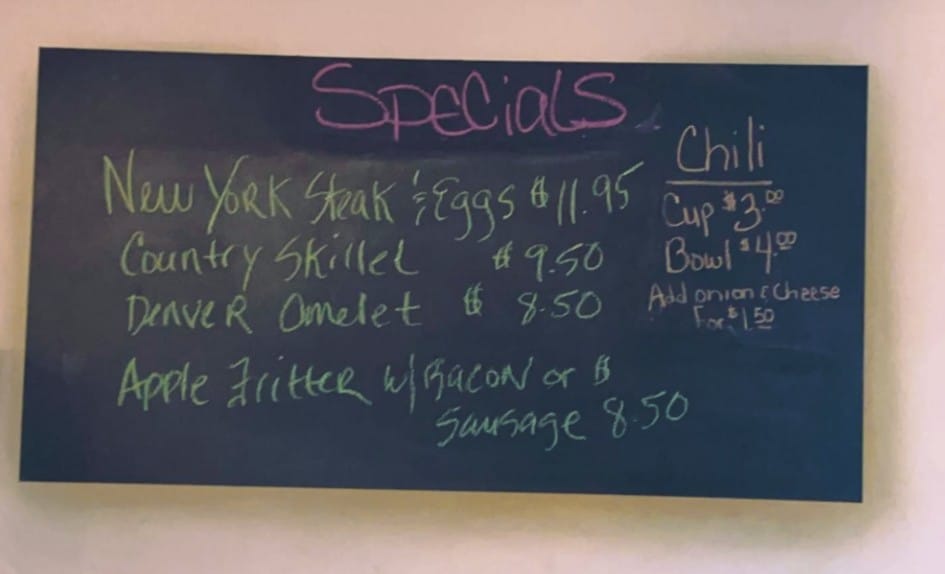 Specials
New York Steak & Eggs $11.95
Country Skillet $9.50
Denver Omelet $ 8.50
Apple Fritter w/ Bacon or $
Sausage 8.50
Chili
Cup $3.00
Bowl $4.00
Add onion & Cheese
For $1.50